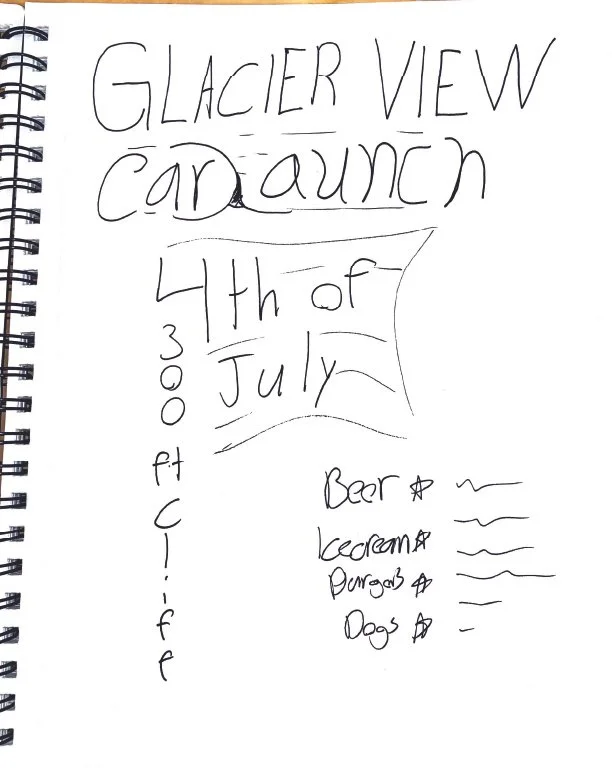 GLACIER VIEW
Car Launch
4th of
July
300
ft
Cliff
Beer
Icecream
Burgers
Dogs